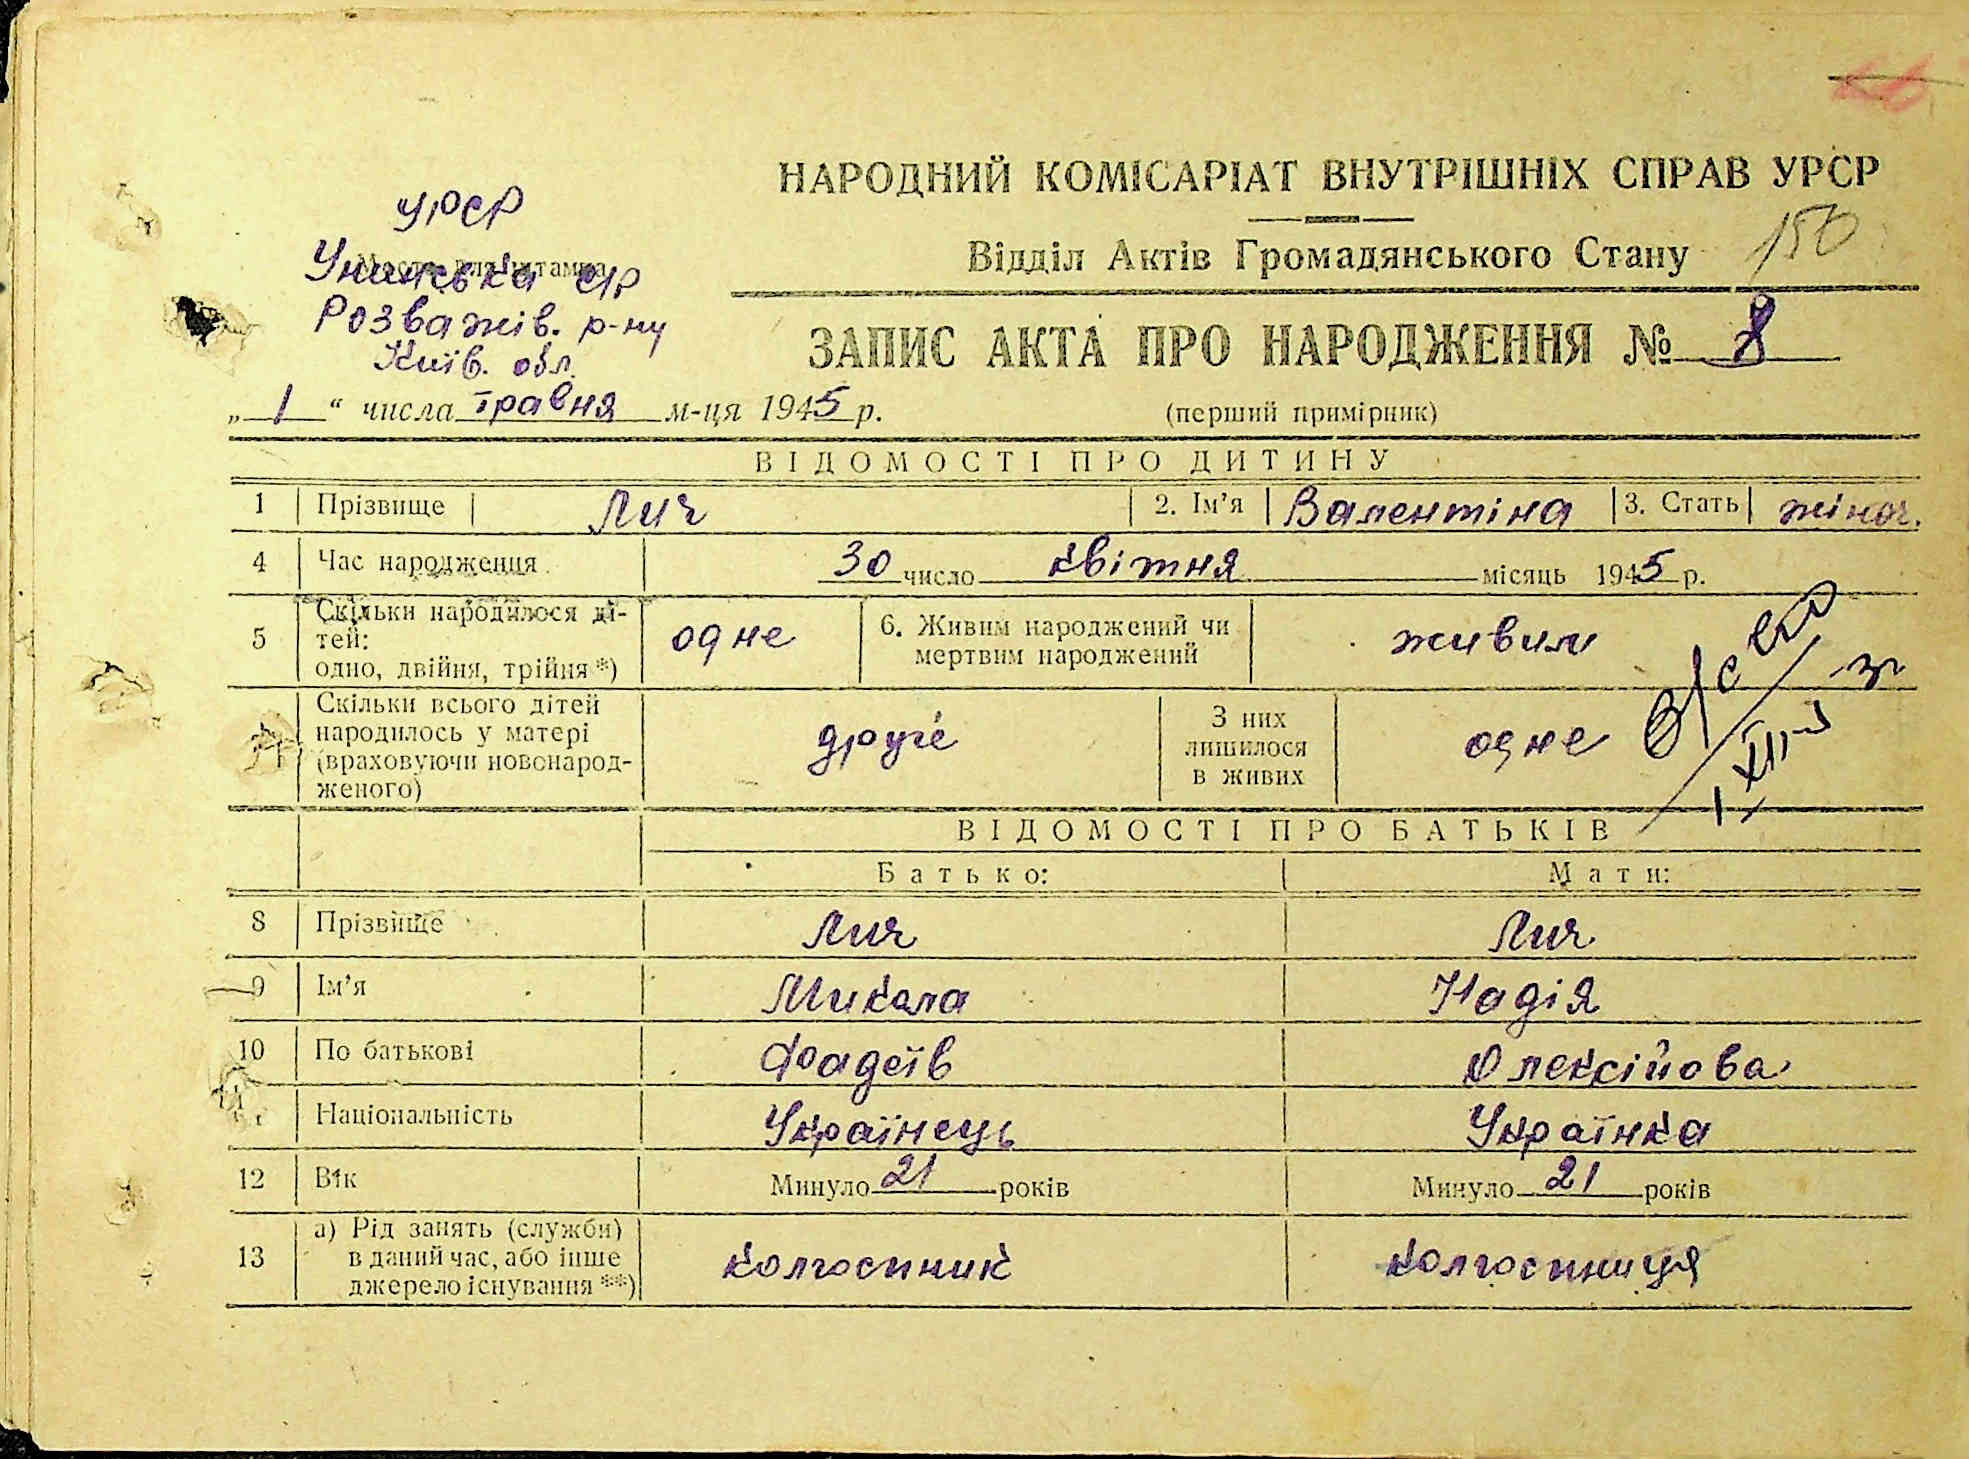 НАРОДНИЙ КОМІСАРІАТ ВНУТРІШНІХ СПРАВ УРСР
Відділ Актів Громадянського Стану
150
УРСР
Місце для штампа
Унинська с/р
Розважів. р-ну
Київ. обл.
ЗАПИС АКТА ПРО НАРОДЖЕННЯ № 8
„ 1 “ числа травня м-ця 1945 р. (перший примірник)
ВІДОМОСТІ ПРО ДИТИНУ
1 Прізвище Лич 2. Ім’я Валентіна 3. Стать жіноч.
4 Час народження 30 число квітня місяць 1945 р.
5 Скільки народилося ді-
тей:
одно, двійня, трійня *) одне 6. Живим народжений чи
мертвим народжений живим
Скільки всього дітей
народилось у матері
(враховуючи новонарод-
женого) друге З них
лишилося
в живих одне
ВІДОМОСТІ ПРО БАТЬКІВ
Батько: Мати:
8 Прізвище Лич Лич
9 Ім’я Микола Надія
10 По батькові Фадеїв Олексійова
Національність Українець Українка
12 Вік Минуло 21 років Минуло 21 років
13 а) Рід занять (служби)
в даний час, або інше
джерело існування **) колгоспник колгоспниця